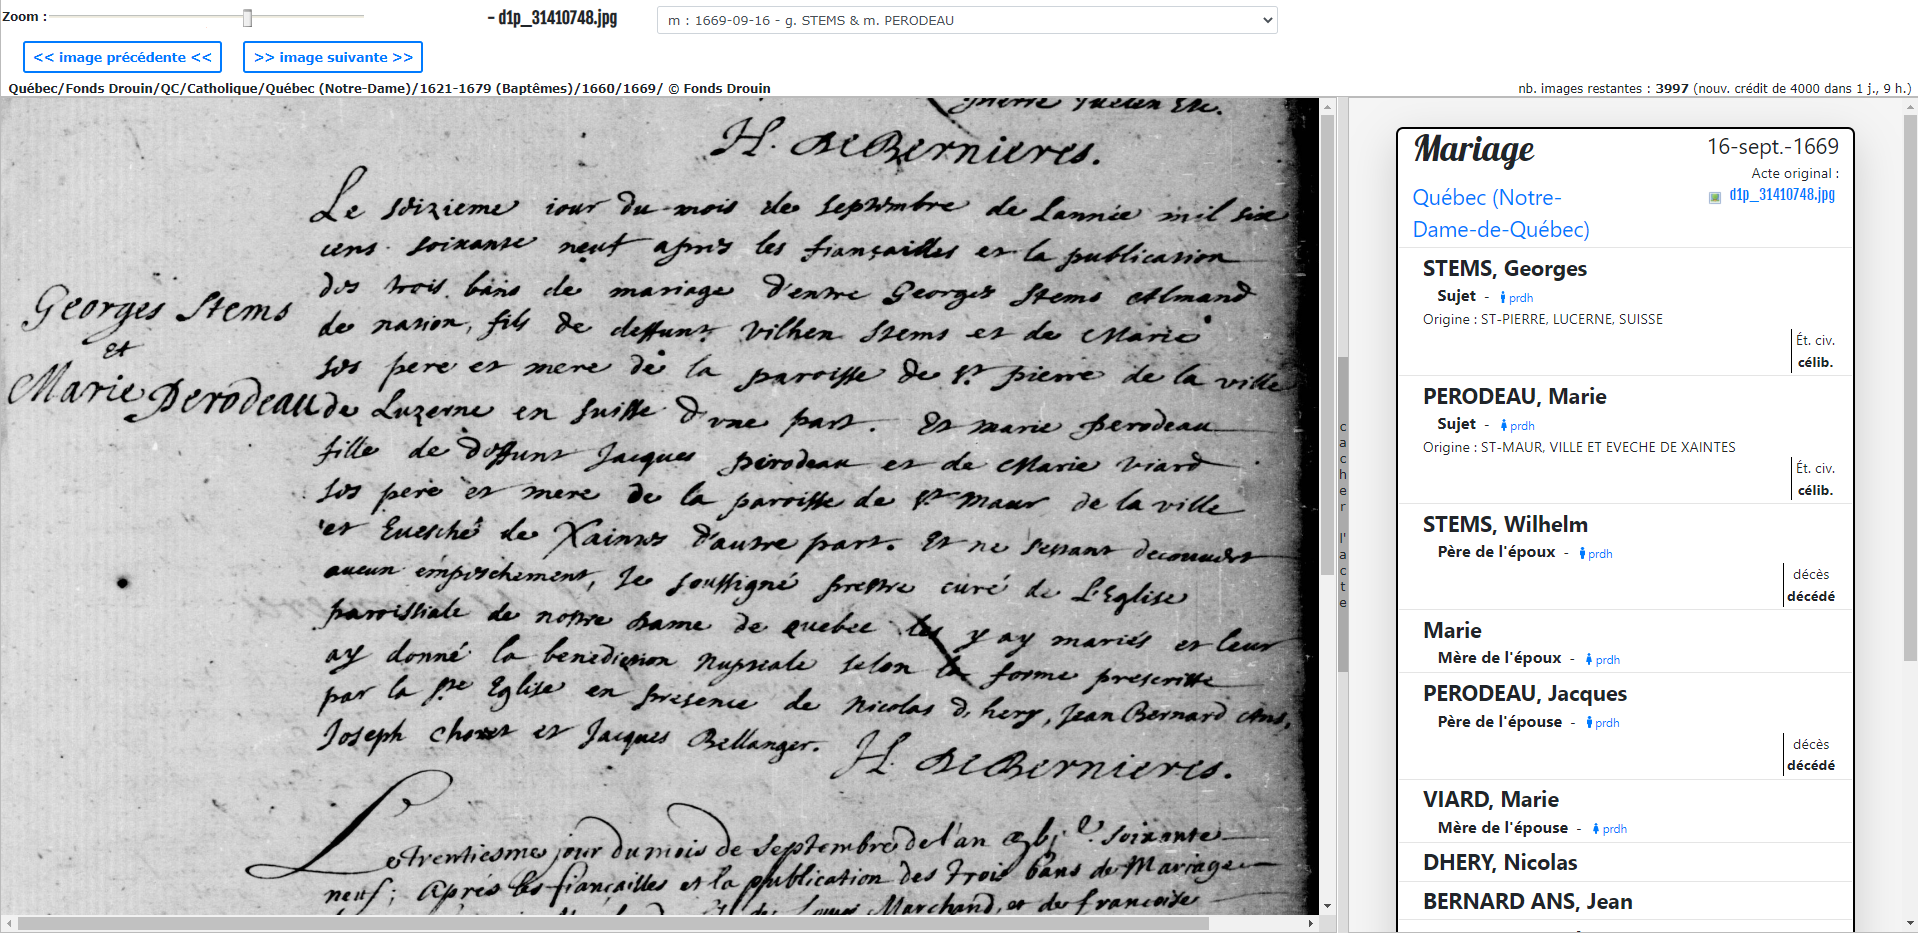 Zoom :
- d1p_31410748.jpg
m : 1669-09-16 - g. STEMS & m. PERODEAU
<< image précédente <<
>> image suivante >>
Québec/Fonds Drouin/QC/Catholique/Québec (Notre-Dame)/1621-1679 (Baptêmes)/1660/1669/ © Fonds Drouin
nb. images restantes : 3997 (nouv. crédit de 4000 dans 1 j., 9 h.)
H. De Bernieres.
Le seizieme iour du mois de septembre de Lannée mil six
cens soixante neuf apres les fiançailles et la publication
des trois bans de mariage d'entre Georges Stems Almand
de nation, fils de deffunt Vilhen Stems et de Marie
ses pere et mere de la paroisse de St pierre de la ville
de Luzerne en Suisse d'vne part. Et marie perodeau
fille de deffunt Jacques perodeau et de Marie viard
ses pere et mere de la paroisse de St Maur de la ville
et Euesché de Xaintes d'autre part. Et ne s'estant decouuert
aucun empeschement, Je soussigné prestre curé de L'Eglise
paroissiale de nostre Dame de quebec les y ay mariés et leur
ay donné la benediction nuptiale selon la forme prescritte
par la Ste Eglise en presence de Nicolas d'hery, Jean Bernard Ans,
Joseph Choret et Jacques Bellanger.
H. De Bernieres.
Georges Stems
et
Marie Perodeau
Le trentiesme jour du mois de Septembre de l'an soixante
neuf; Aprés les fiançailles et la publication des trois bans de Mariage
Marchand, et de francoise
cacher l'acte
Mariage
16-sept.-1669
Acte original :
d1p_31410748.jpg
Québec (Notre-
Dame-de-Québec)
STEMS, Georges
Sujet - prdh
Origine : ST-PIERRE, LUCERNE, SUISSE
Ét. civ.
célib.
PERODEAU, Marie
Sujet - prdh
Origine : ST-MAUR, VILLE ET EVECHE DE XAINTES
Ét. civ.
célib.
STEMS, Wilhelm
Père de l'époux - prdh
décès
décédé
Marie
Mère de l'époux - prdh
PERODEAU, Jacques
Père de l'épouse - prdh
décès
décédé
VIARD, Marie
Mère de l'épouse - prdh
DHERY, Nicolas
BERNARD ANS, Jean